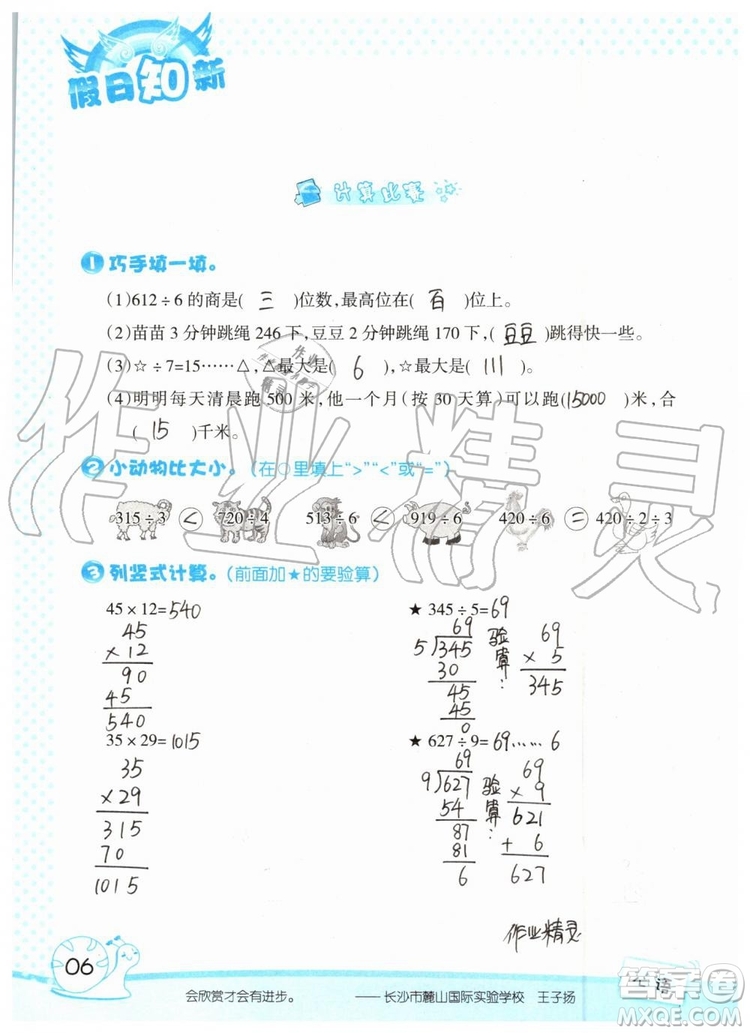 假日知新
计算比赛
1 巧手填一填。
(1)612÷6的商是( 三 )位数,最高位在( 百 )位上。
(2)苗苗3分钟跳绳246下,豆豆2分钟跳绳170下,( 豆豆 )跳得快一些。
(3)☆÷7=15……△,△最大是( 6 ),☆最大是( 111 )。
(4)明明每天清晨跑500米,他一个月(按30天算)可以跑(15000 )米,合
( 15 )千米。
2 小动物比大小。(在○里填上“>”“<”或“=”)
315÷3 < 720÷4 513÷6 < 919÷6 420÷6 = 420÷2÷3
3 列竖式计算。(前面加★的要验算)
45×12=540
45
×12
90
45
540
★ 345÷5=69
69
5 345
30
45
45
0
验算:
69
× 5
345
35×29=1015
35
×29
315
70
1015
★ 627÷9=69……6
69
9 627
54
87
81
6
验算:
69
× 9
621
+ 6
627
作业精灵
06
会欣赏才会有进步。 ——长沙市麓山国际实验学校 王子扬
作业精灵
答案圈
MXQE.COM